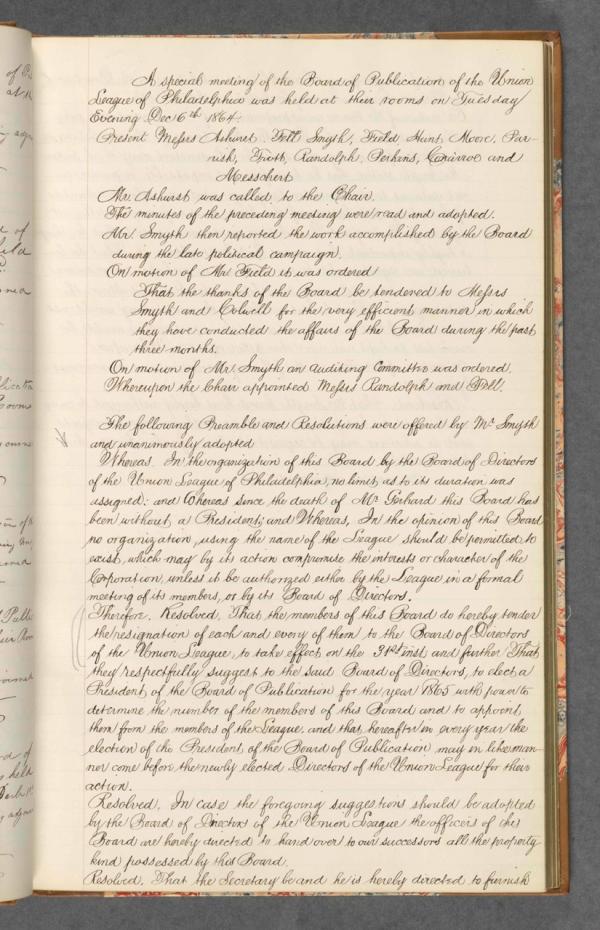 A special meeting of the Board of Publication of the Union
League of Philadelphia was held at their rooms on Tuesday
Evening Dec 6th 1864.
Present Messrs Ashurst, Fell Smyth, Field Hunt, Moore, Par-
rish, Trott, Randolph, Perkins, Conarroe and
Messchert
Mr. Ashurst was called to the Chair.
The minutes of the preceding meeting were read and adopted.
Mr. Smyth then reported the work accomplished by the Board
during the late political campaign.
On motion of Mr. Field it was ordered
That the thanks of the Board be tendered to Messrs
Smyth and Colwell for the very efficient manner in which
they have conducted the affairs of the Board during the past
three months.
On motion of Mr. Smyth an auditing Committee was ordered.
Whereupon the Chair appointed Messrs Randolph and Fell.
The following Preamble and Resolutions were offered by Mr. Smyth
and unanimously adopted
Whereas. In the organization of this Board by the Board of Directors
of the Union League of Philadelphia, no limit, as to its duration was
assigned; and Whereas since the death of Mr. Gerhard this Board has
been without a President; and Whereas, In the opinion of this Board
no organization, using the name of the League should be permitted to
exist, which may by its action compromise the interests or character of the
Corporation, unless it be authorized either by the League in a formal
meeting of its members, or by its Board of Directors.
Therefore. Resolved, That the members of this Board do hereby tender
the resignation of each and every of them to the Board of Directors
of the Union League, to take effect on the 31st inst, and further That
they respectfully suggest to the said Board of Directors, to elect a
President of the Board of Publication for the year 1865 with power to
determine the number of the members of this Board and to appoint
them from the members of the League, and that hereafter in every year the
election of the President of the Board of Publication may in like man-
ner come before the newly elected Directors of the Union League for their
action.
Resolved, In case the foregoing suggestions should be adopted
by the Board of Directors of the Union League the officers of this
Board are hereby directed to hand over to our successors all the property
kind possessed by this Board.
Resolved, That the Secretary be and he is hereby directed to furnish